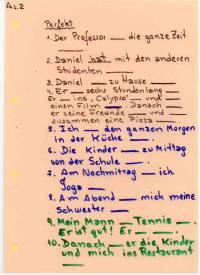 A1.2
Perfekt
1. Der Professor __ die ganze Zeit __.
2. Daniel hat mit den anderen
Studenten __
3. Daniel __ zu Hause __
4. Er __ sechs Stundenlang __
Er __ ins „Calypso" __ und
einen Film __. Danach __
er seine Freunde __ und
zusammen eine Pizza __.
5. Ich __ den ganzen Morgen
in der Küche __.
6. Die Kinder __ zu Mittag
von der Schule __.
7. Am Nachmittag __ ich
Joga __.
8. Am Abend __ mich meine
Schwester __.
9. Mein Mann __ Tennis __.
Er ist gut! Er __ __.
10. Danach __ er die Kinder
und mich ins Restaurant
__.